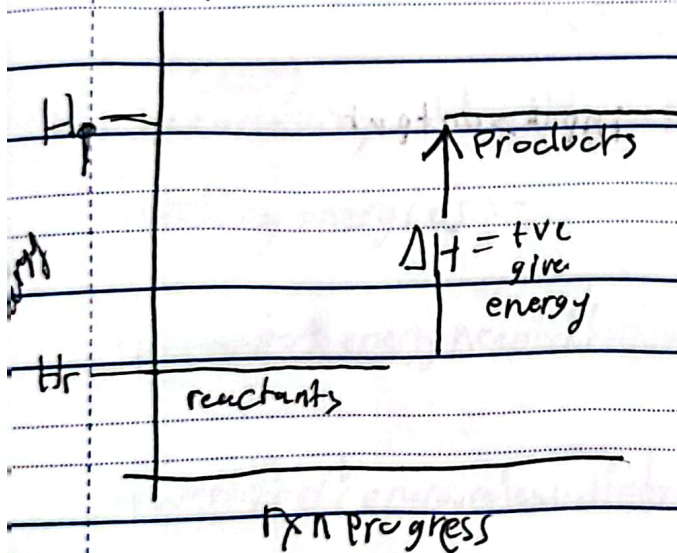 Hp
Products
ΔH = +ve
give
energy
Hr
reactants
rxn progress